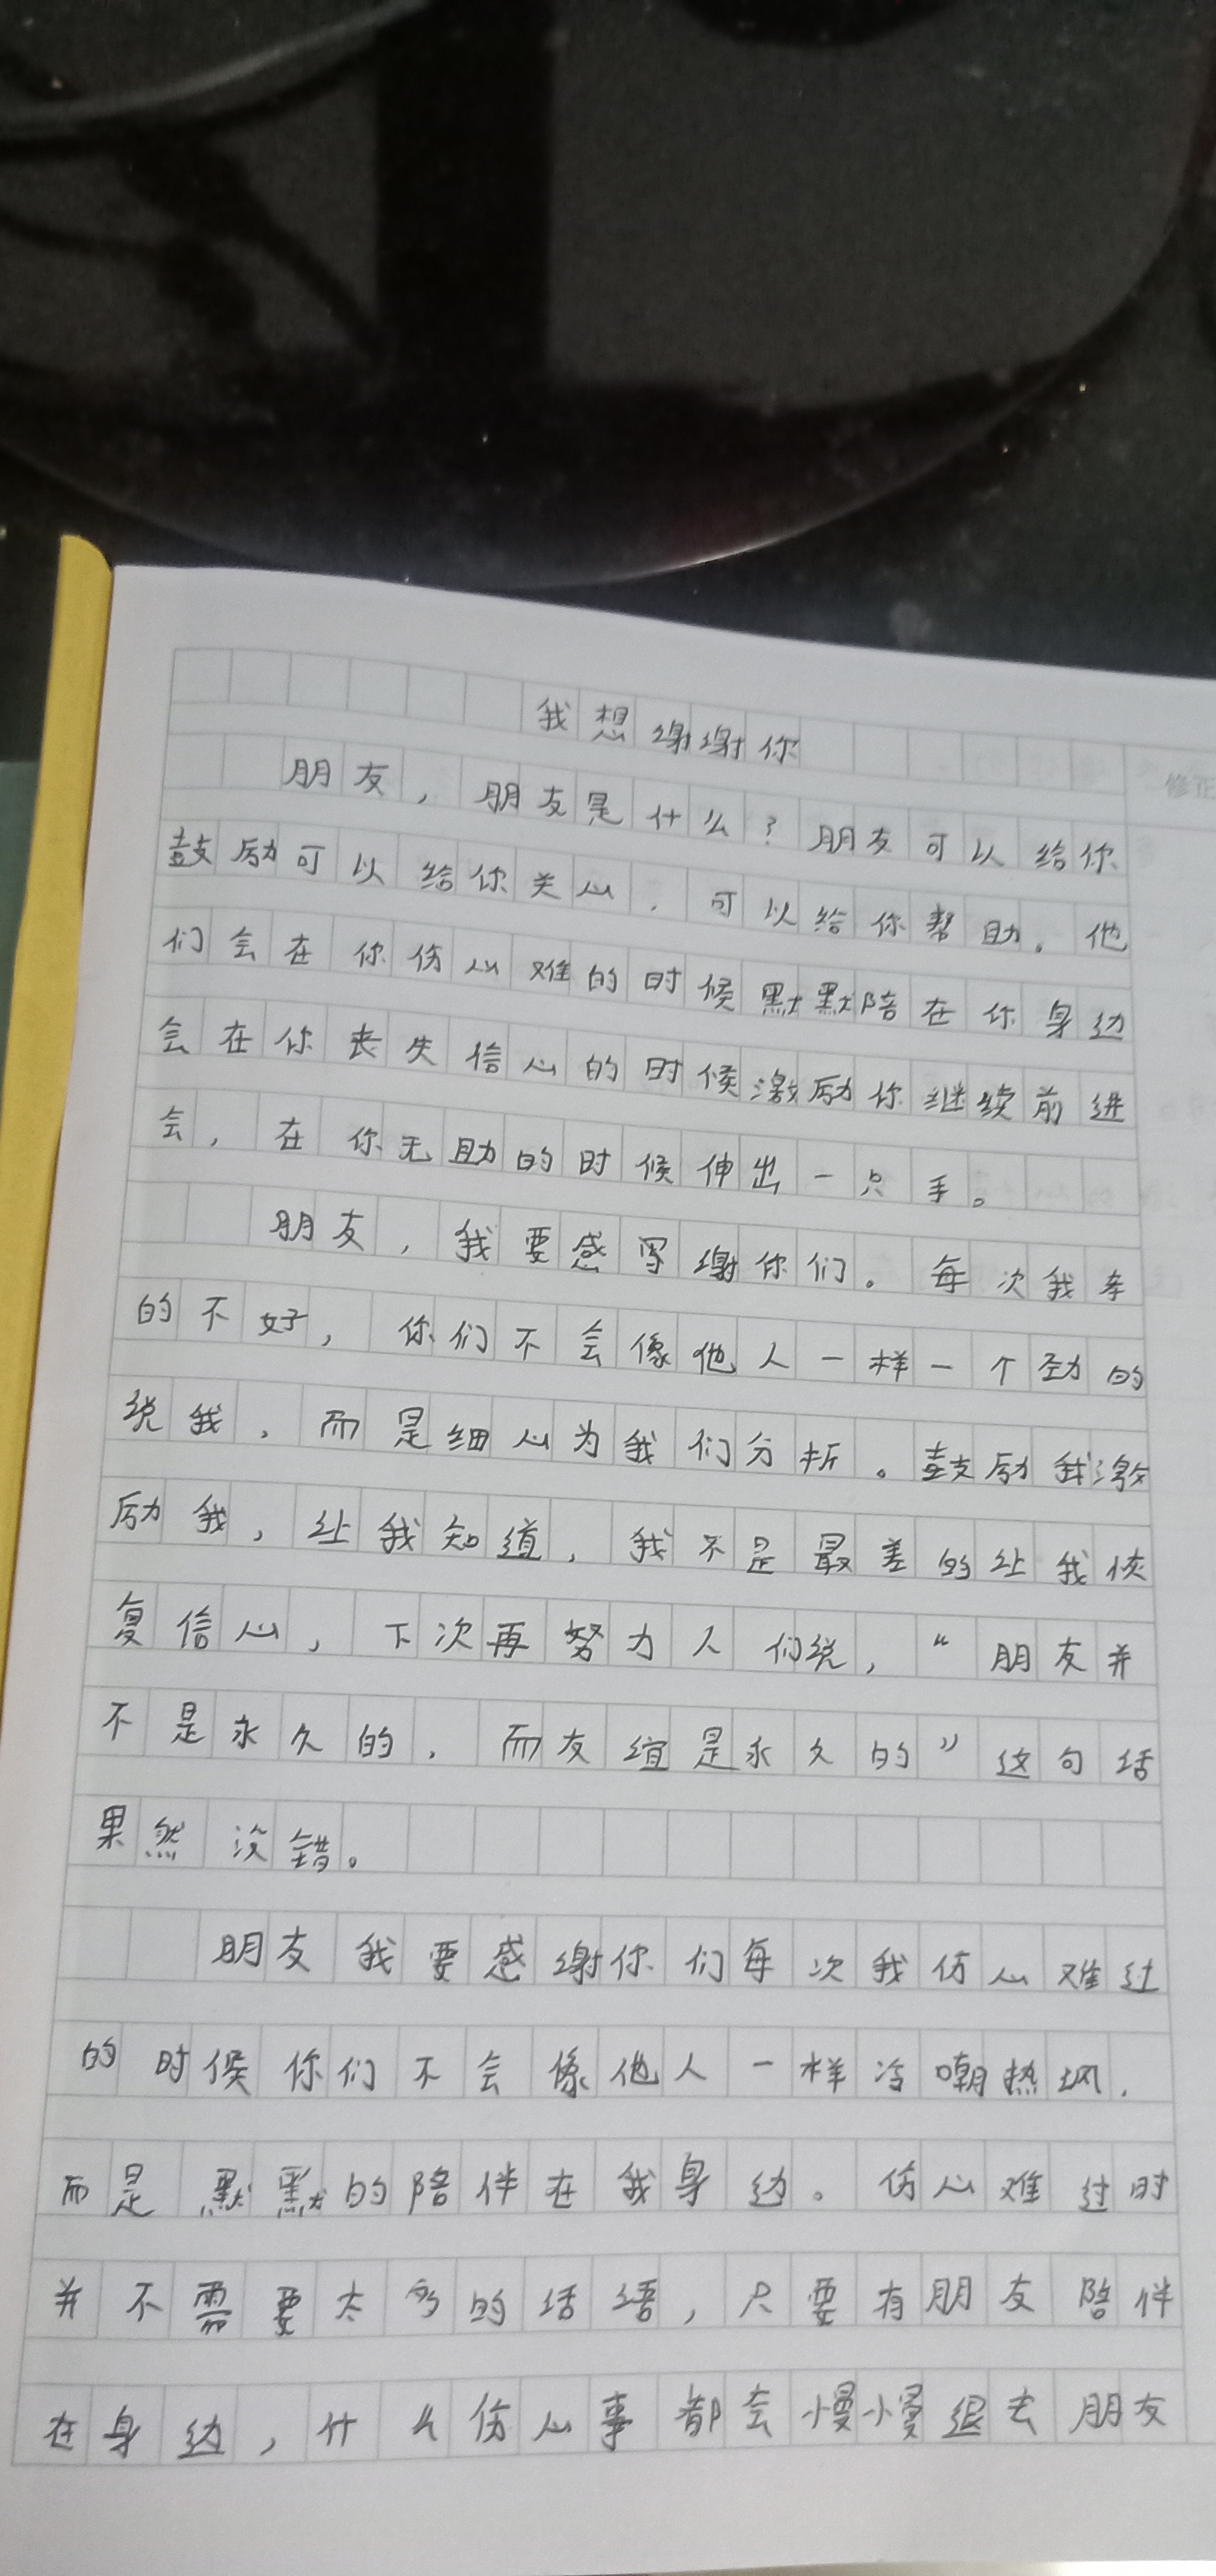 我想谢谢你
修正
朋友，朋友是什么？朋友可以给你
鼓励可以给你关心，可以给你帮助。他
们会在你伤心难的时候默默陪在你身边
会在你丧失信心的时候激励你继续前进
会，在你无助的时候伸出一只手。
朋友，我要感写谢你们。每次我考
的不好，你们不会像他人一样一个劲的
说我，而是细心为我们分析。鼓励我激
励我，让我知道，我不是最差的让我恢
复信心，下次再努力人们说，“朋友并
不是永久的，而友谊是永久的”这句话
果然没错。
朋友我要感谢你们每次我伤心难过
的时候你们不会像他人一样冷嘲热讽，
而是默默的陪伴在我身边。伤心难过时
并不需要太多的话语，只要有朋友陪伴
在身边，什么伤心事都会慢慢退去朋友